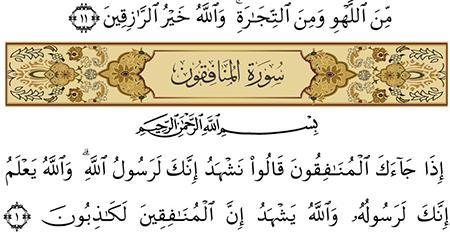 مِّنَ ٱللَّهْوِ وَمِنَ ٱلتِّجَٰرَةِۚ وَٱللَّهُ خَيْرُ ٱلرَّٰزِقِينَ ١١
سُورَةُ المُنَافِقُونَ
بِسْمِ ٱللَّهِ ٱلرَّحْمَٰنِ ٱلرَّحِيمِ
إِذَا جَآءَكَ ٱلْمُنَٰفِقُونَ قَالُوا۟ نَشْهَدُ إِنَّكَ لَرَسُولُ ٱللَّهِۗ وَٱللَّهُ يَعْلَمُ
إِنَّكَ لَرَسُولُهُۥ وَٱللَّهُ يَشْهَدُ إِنَّ ٱلْمُنَٰفِقِينَ لَكَٰذِبُونَ ١